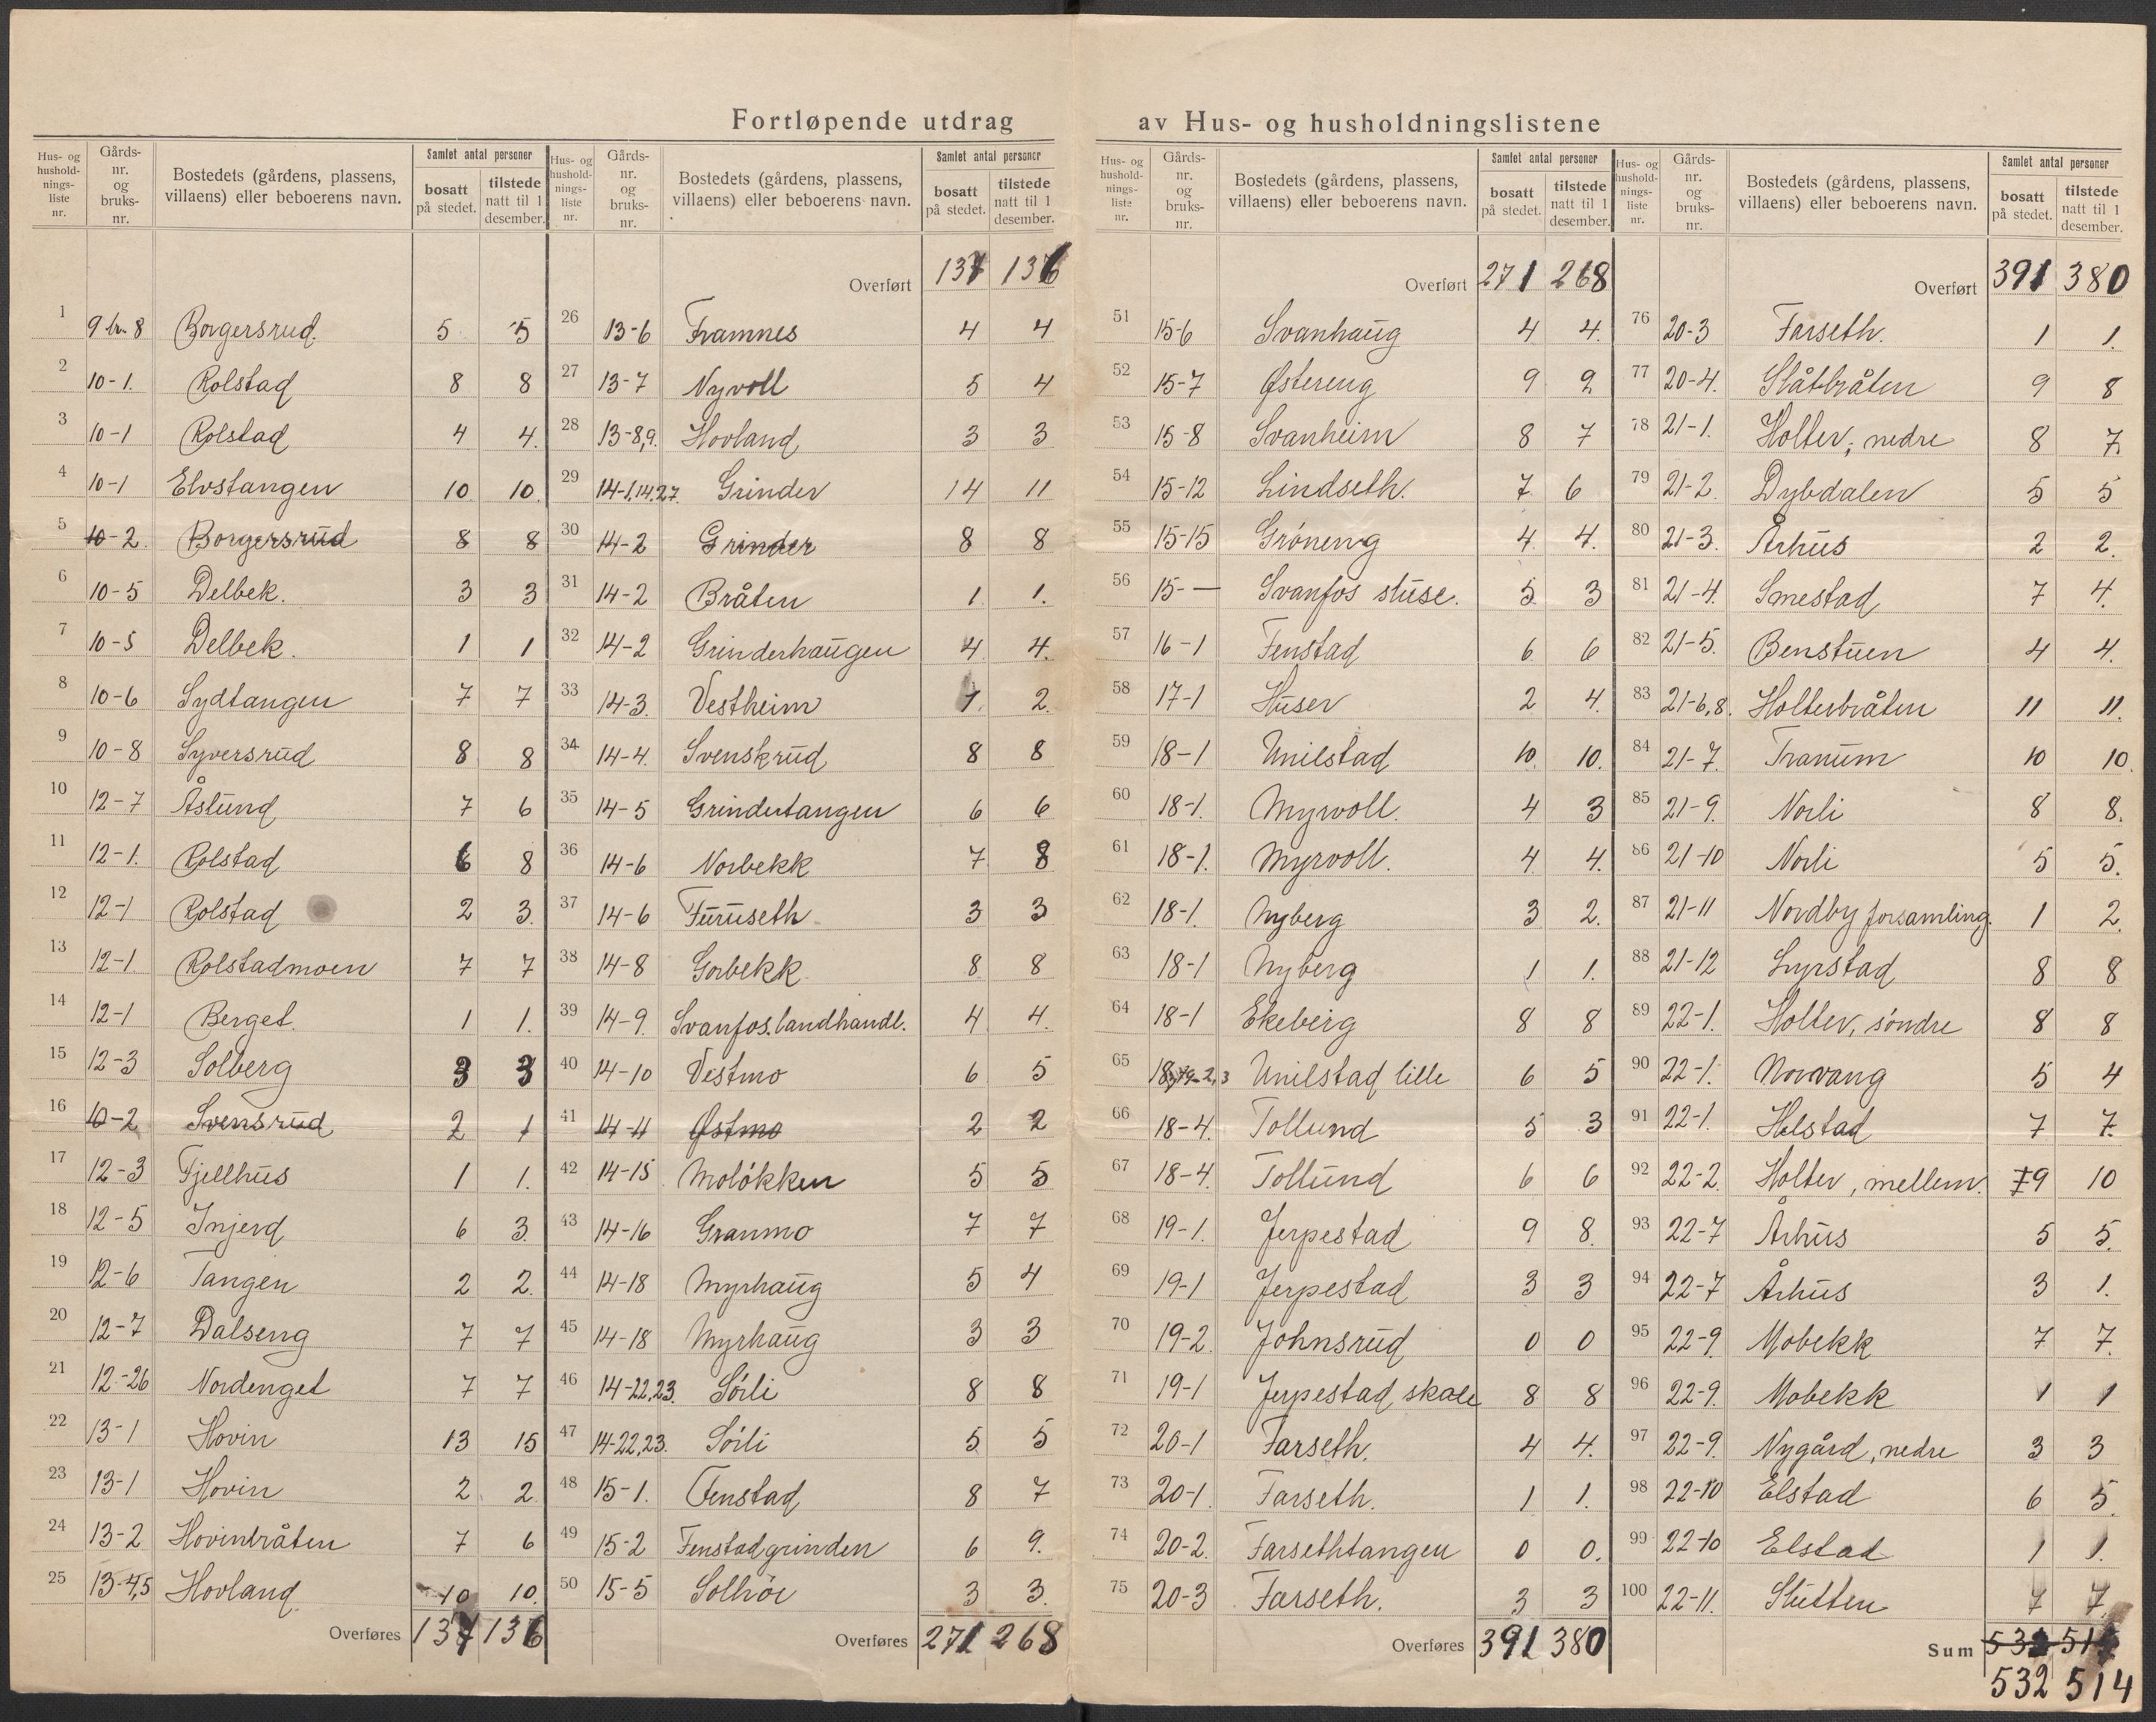 Fortløpende utdrag av Hus- og husholdningslistene
Hus- og husholdnings-liste nr. Gårds-nr. og bruks-nr. Bostedets (gårdens, plassens, villaens) eller beboerens navn. Samlet antal personer bosatt på stedet. tilstede natt til 1 desember.
1 9 br. 8 Borgersrud. 5 5
2 10-1. Rolstad 8 8
3 10-1 Rolstad 4 4.
4 10-1 Elvstangen 10 10.
5 10-2. Borgersrud 8 8
6 10-5 Delbek. 3 3
7 10-5 Delbek. 1 1
8 10-6 Sydtangen 7 7
9 10-8 Syversrud 8 8
10 12-7 Åslund 7 6
11 12-1. Rolstad 6 8
12 12-1 Rolstad 2 3.
13 12-1. Rolstadmoen 7 7
14 12-1 Berget. 1 1.
15 12-3 Solberg 3 3
16 10-2 Svensrud 2 1
17 12-3 Fjellhus 1 1.
18 12-5 Injerd 6 3.
19 12-6 Tangen 2 2.
20 12-7 Dalseng 7 7
21 12-26 Nordenget 7 7
22 13-1 Hovin 13 15
23 13-1 Hovin 2 2
24 13-2 Hovinbråten 7 6
25 13-4,5 Hovland 10 10.
Overføres 137 136
Hus- og husholdnings-liste nr. Gårds-nr. og bruks-nr. Bostedets (gårdens, plassens, villaens) eller beboerens navn. Samlet antal personer bosatt på stedet. tilstede natt til 1 desember.
Overført 137 136
26 13-6 Framnes 4 4
27 13-7 Nyvoll 5 4
28 13-8,9. Hovland 3 3
29 14-1,14,27. Grinder 14 11
30 14-2 Grinder 8 8
31 14-2 Bråten 1 1.
32 14-2 Grinderhaugen 4 4.
33 14-3. Vestheim 1 2.
34 14-4. Svenskrud 8 8
35 14-5 Grindertangen 6 6
36 14-6 Norbekk 7 8
37 14-6 Furuseth 3 3
38 14-8 Gorbekk 8 8
39 14-9. Svanfos.landhandl. 4 4.
40 14-10 Vestmo 6 5
41 14-11 Østmo 2 2
42 14-15 Moløkken 5 5
43 14-16 Granmo 7 7
44 14-18 Myrhaug 5 4
45 14-18 Myrhaug 3 3
46 14-22,23. Sørli 8 8
47 14-22,23. Sørli 5 5
48 15-1. Fenstad 8 7
49 15-2 Fenstadgrinden 6 9.
50 15-5 Solhør 3 3.
Overføres 271 268
Hus- og husholdnings-liste nr. Gårds-nr. og bruks-nr. Bostedets (gårdens, plassens, villaens) eller beboerens navn. Samlet antal personer bosatt på stedet. tilstede natt til 1 desember.
Overført 271 268
51 15-6 Svanhaug 4 4.
52 15-7 Østereng 9 9
53 15-8 Svanheim 8 7
54 15-12 Lindseth. 7 6
55 15-15 Grøneng 4 4.
56 15-— Svanfos sluse. 5 3
57 16-1 Fenstad 6 6
58 17-1 Huser 2 4.
59 18-1 Unilstad 10 10.
60 18-1. Myrvoll. 4 3
61 18-1. Myrvoll. 4 4.
62 18-1. Nyberg 3 2.
63 18-1 Nyberg 1 1.
64 18-1 Ekeberg 8 8
65 Unilstad lille 6 5
66 18-4. Tollund 5 3
67 18-4. Tollund 6 6
68 19-1. Jerpestad 9 8.
69 19-1 Jerpestad 3 3
70 19-2. Johnsrud 0 0
71 19-1 Jerpestad skole 8 8
72 20-1 Farseth. 4 4.
73 20-1. Farseth. 1 1.
74 20-2. Farsethtangen 0 0.
75 20-3 Farseth. 3 3
Overføres 391 380
Hus- og husholdnings-liste nr. Gårds-nr. og bruks-nr. Bostedets (gårdens, plassens, villaens) eller beboerens navn. Samlet antal personer bosatt på stedet. tilstede natt til 1 desember.
Overført 391 380
76 20-3 Farseth. 1 1.
77 20-4. Slåtbråten 9 8
78 21-1. Holter, nedre 8 7.
79 21-2. Dybdalen 5 5
80 21-3. Århus 2 2.
81 21-4. Smestad 7 4.
82 21-5. Benstuen 4 4.
83 21-6,8. Holterbråten 11 11.
84 21-7. Tranum 10 10.
85 21-9. Norli 8 8.
86 21-10 Norli 5 5.
87 21-11 Nordby forsamling. 1 2.
88 21-12 Lyrstad 8 8
89 22-1. Holter, søndre 8 8
90 22-1. Norvang 5 4
91 22-1. Helstad 7 7.
92 22-2. Holter, mellem. 7 9 10
93 22-7 Århus 5 5.
94 22-7 Århus 3 1.
95 22-9. Mobekk 7 7.
96 22-9. Mobekk 1 1
97 22-9. Nygård, nedre 3 3
98 22-10 Elstad 6 5.
99 22-10 Elstad 1 1.
100 22-11. Slutten 7 7.
Sum 532 514
532 514